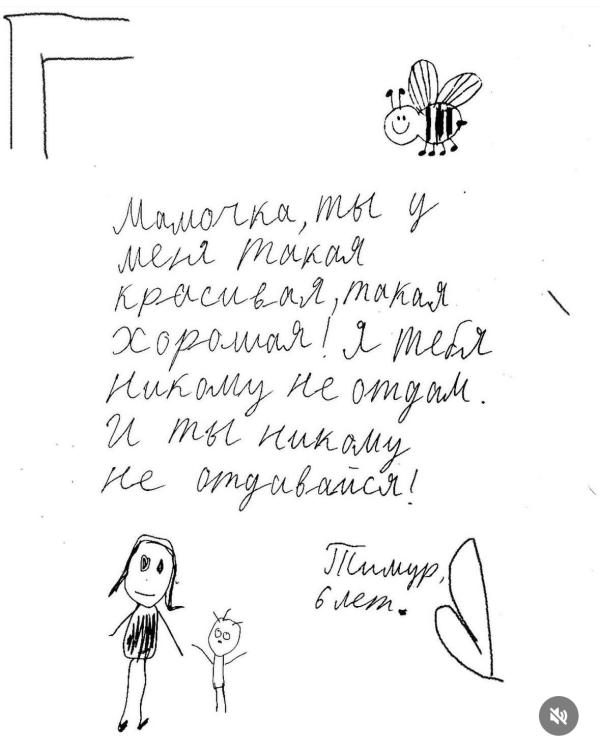 Мамочка, ты у
меня такая
красивая, такая
хорошая! Я тебя
никому не отдам.
И ты никому
не отдавайся!
Тимур,
6 лет.